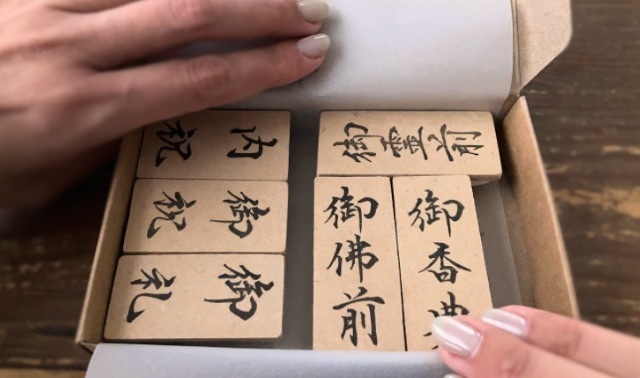 内祝
御祝
御礼
御霊前
御佛前
御香